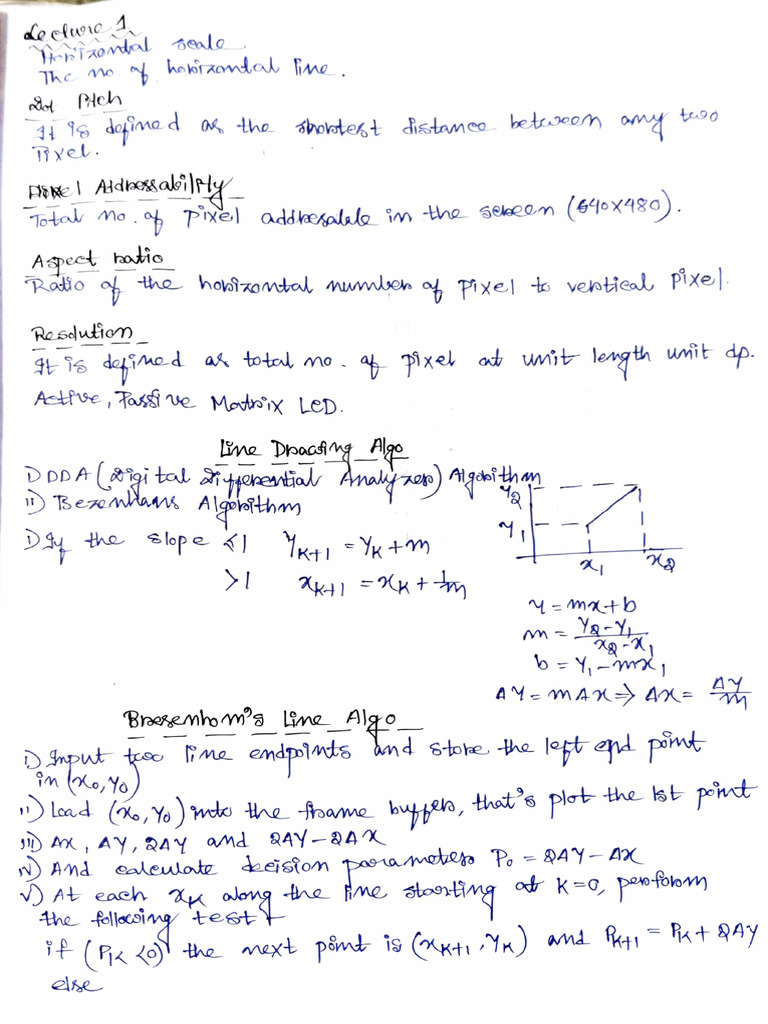 Lecture 1
Horizontal scale.
The no of horizontal line.
Dot Pitch
It is defined as the shortest distance between any two
Pixel.
Pixel Addressability
Total no. of pixel addresalale in the screen (640x480).
Aspect ratio
Ratio of the horizontal number of pixel to vertical pixel.
Resolution
It is defined as total no. of pixel at unit length unit dp.
Active, Passive Matrix LCD.
Line Drawing Algo
i) DDA (Digital Differential Analyzer) Algorithm
ii) Bezenhams Algorithm
i) If the slope <1 y_{k+1} = y_k + m
>1 x_{k+1} = x_k + 1/m
y_2
y_1
x_1 x_2
y = mx + b
m = (y_2 - y_1)/(x_2 - x_1)
b = y_1 - mx_1
Δy = mΔx ⇒ Δx = Δy/m
Bresenham's Line Algo
i) Input two line endpoints and store the left end point
in (x_0, y_0)
ii) Load (x_0, y_0) into the frame buffer, that's plot the 1st point
iii) Δx, Δy, 2Δy and 2Δy - 2Δx
iv) And calculate decision parameters P_0 = 2Δy - Δx
v) At each x_k along the line starting at k=0, peroform
the following test
if (P_k < 0) the next point is (x_{k+1}, y_k) and P_{k+1} = P_k + 2Δy
else